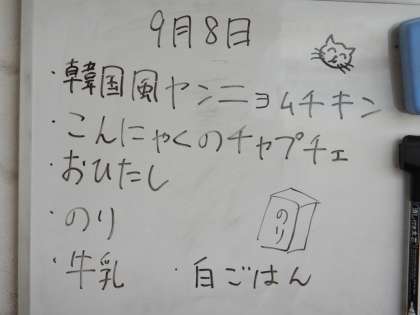 9月8日
・韓国風ヤンニョムチキン
・こんにゃくのチャプチェ
・おひたし
・のり
のり
・牛乳 ・白ごはん